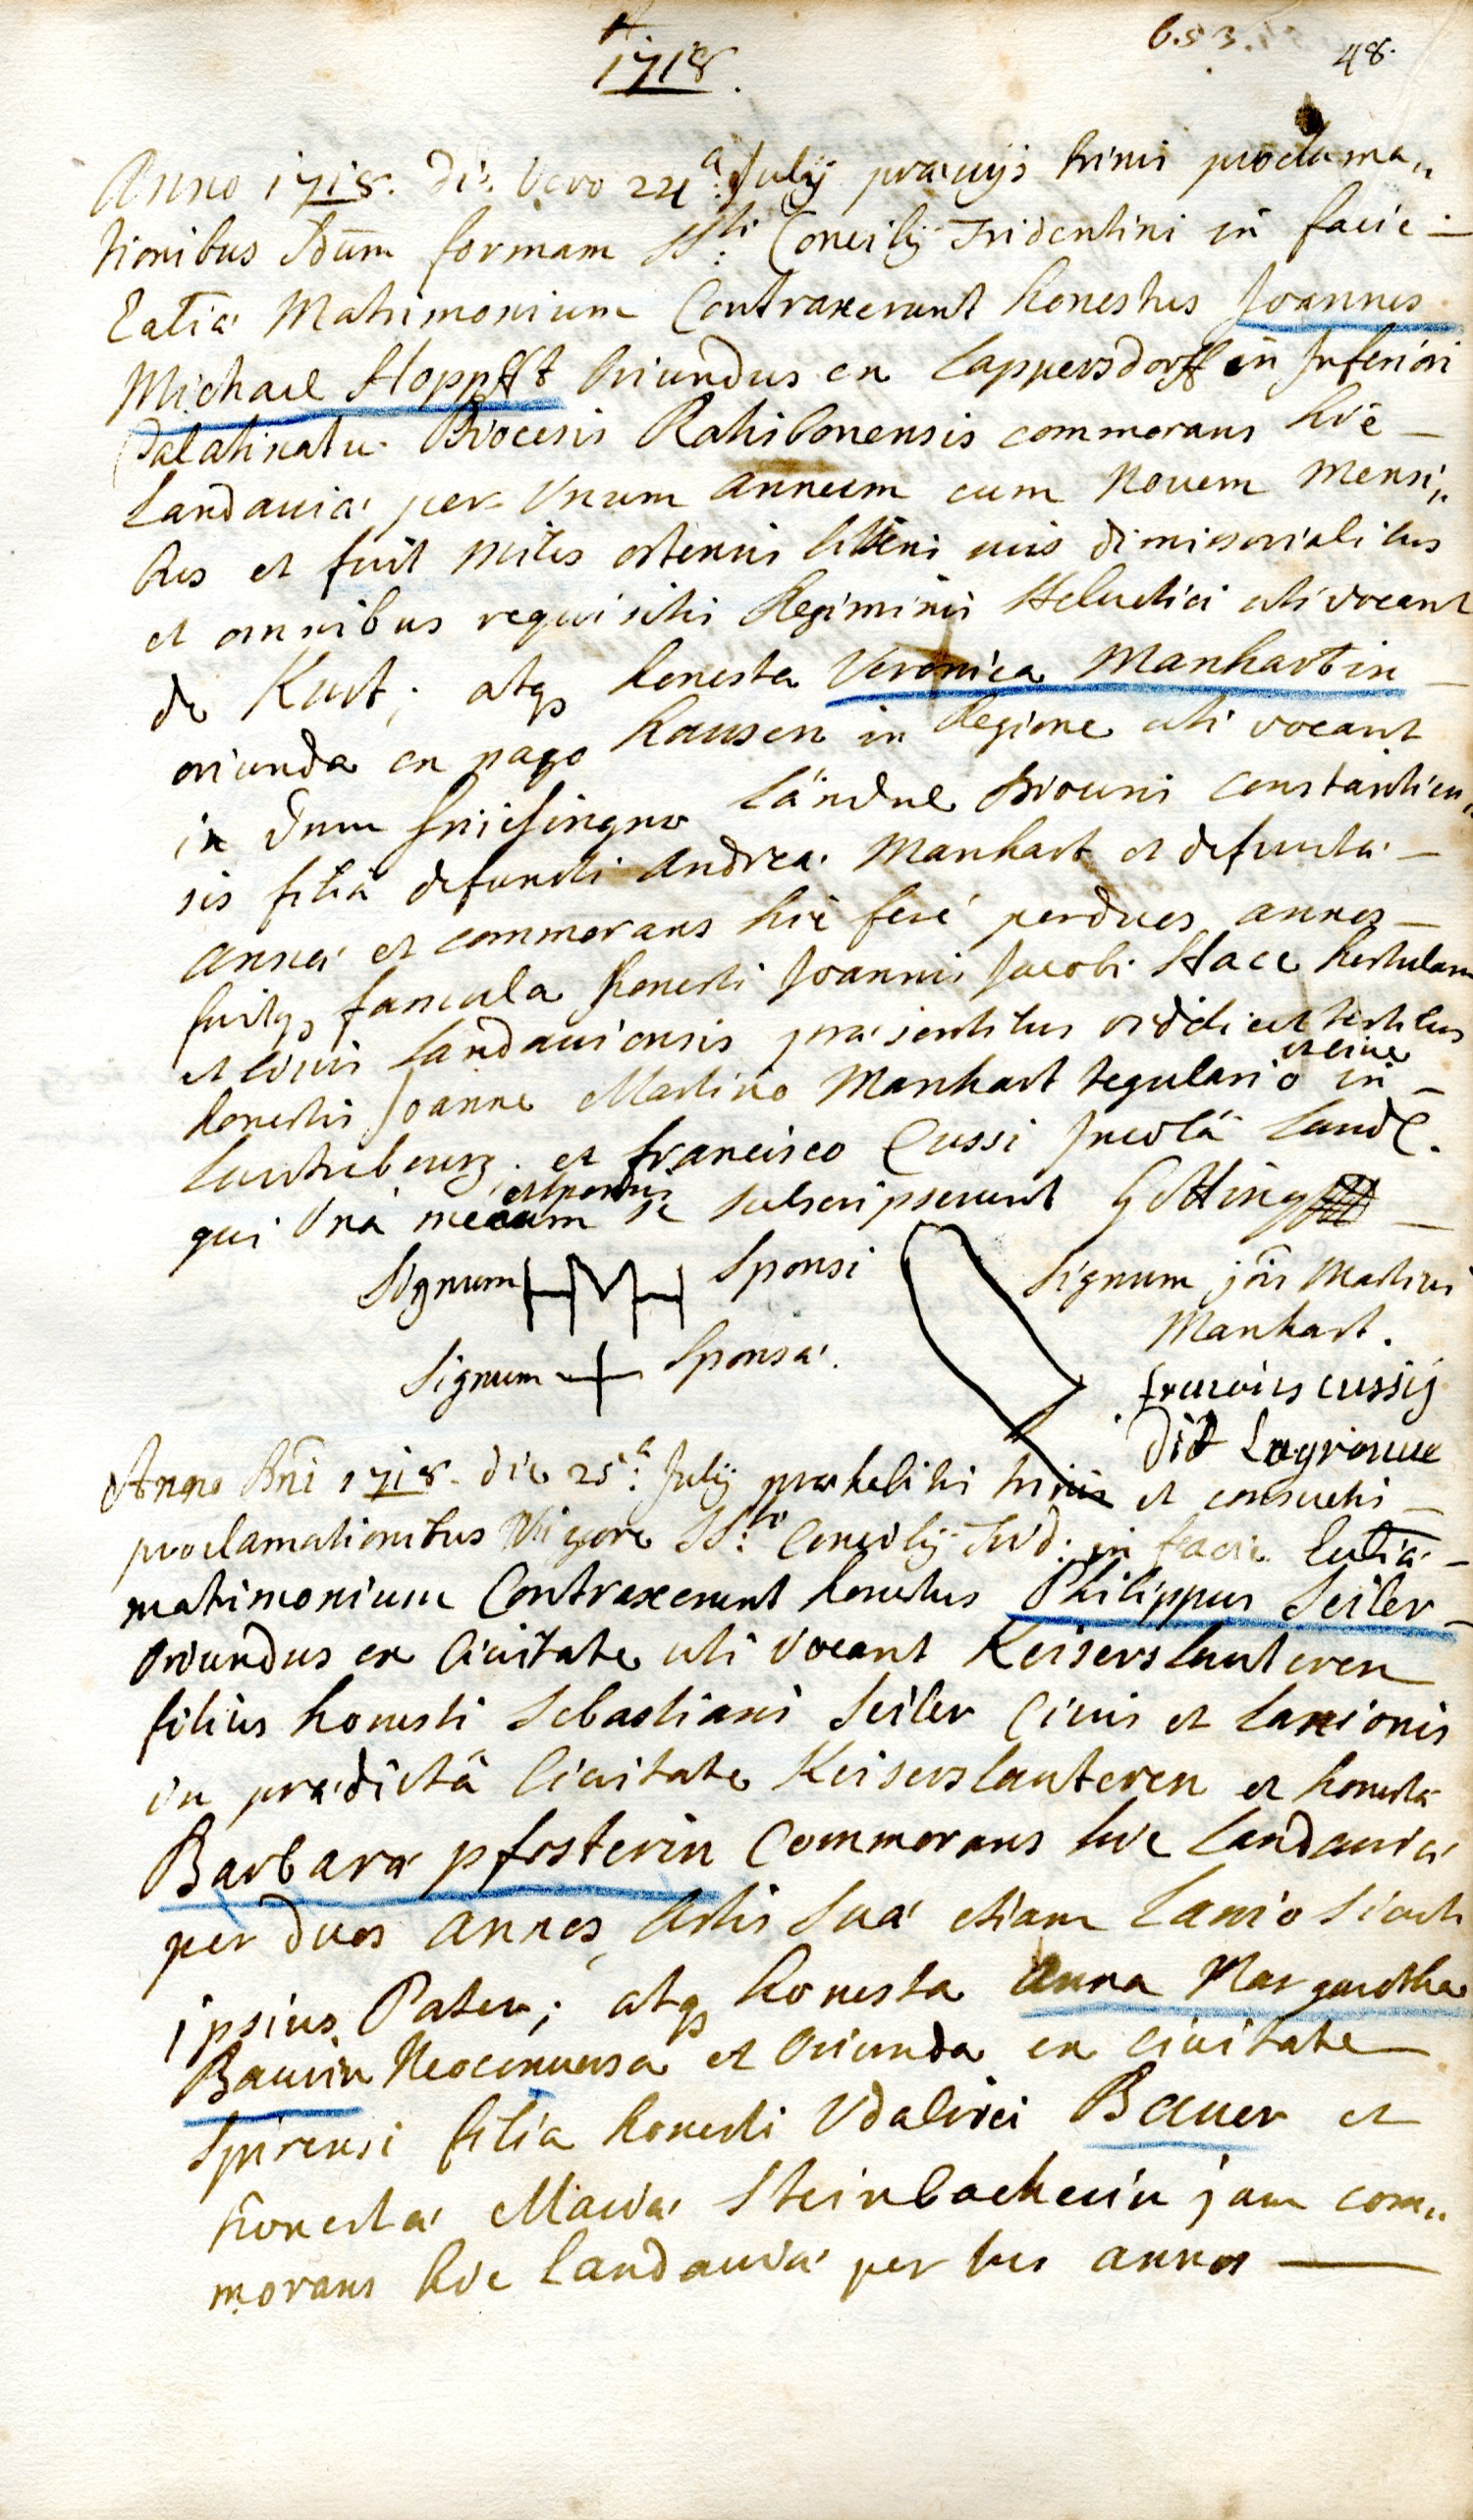 1718.
6.53.
48.
Anno 1718. die Vero 24ª: July præuijs trinis proclama„
tionibus Sdum formam SS:ti Concilij Tridentini in facie
Ecatiæ Matrimonium Contraxerunt honestus Joannes
Michael Hopfft Oriundus ex Lappersdorff in Inferiori
Palatinatu Diocesis Ratisbonensis commorans hic
Landauiæ per Vnum annum cum Nouem Mensi„
bus et fuit Miles ostensis litteris suis dimissorialibus
et omnibus requisitis Regiminis Heluetici uti vocant
de Kurt; atq honesta Veronica Manhartin
oriunda ex pago hausen in Regione uti vocant
in dem Ländel Diocesis Constantien„
sis filia defuncti Andreæ Manhart et defunctæ
annæ et commorans hic ferè per duos annos
fuitq famula honesti Joannis Jacobi Hace
et Ciuis Landauiensis præsentibus testibus
honestis Joanne Martino Manhart tegulario et ciue in
et Francisco Cussi Incolâ Land.
qui Vnà mecum et sponsis se subscripserunt Götting
Signum HMH Sponsi
Signum + Sponsæ.
Signum jois Martini
Manhart.
francois cussij
dit Lagrionue
Anno Dni 1718. die 25ª: July præhabitis trinis et consuetis
proclamationibus Vigore SS:ti Concilij Trid: in facie Ecatiæ
matrimonium Contraxerunt honestus Philippus Seiler
Oriundus ex Ciuitate uti Vocant Keiserslauteren
filius honesti Sebastiani Seiler Ciuis et Lanionis
in prædictâ Ciuitate Keiserslauteren et honestæ
Barbaræ pfosterin Commorans hic Landauiæ
per duos annos, Artis Suæ etiam Lanio sicuti
ipsius Pater; atq honesta Anna Margaretha
Baurin Neoconuersa et Oriunda ex Ciuitate
Spirensi filia honesti Vdalrici Bauer et
honestæ Mariæ Steinbacherin jam com„
morans hic Landauiæ per tres annos